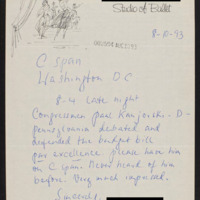 Studio of Ballet
8-10-93
C Span
Washington D C
8-4 late night
Congressman Paul Kanjorski - D-
Pennsylvania debated and
defended the budget bill
par excellence. Please have him
on C Span. Never heard of him
before. Very much impressed.
Sincerely